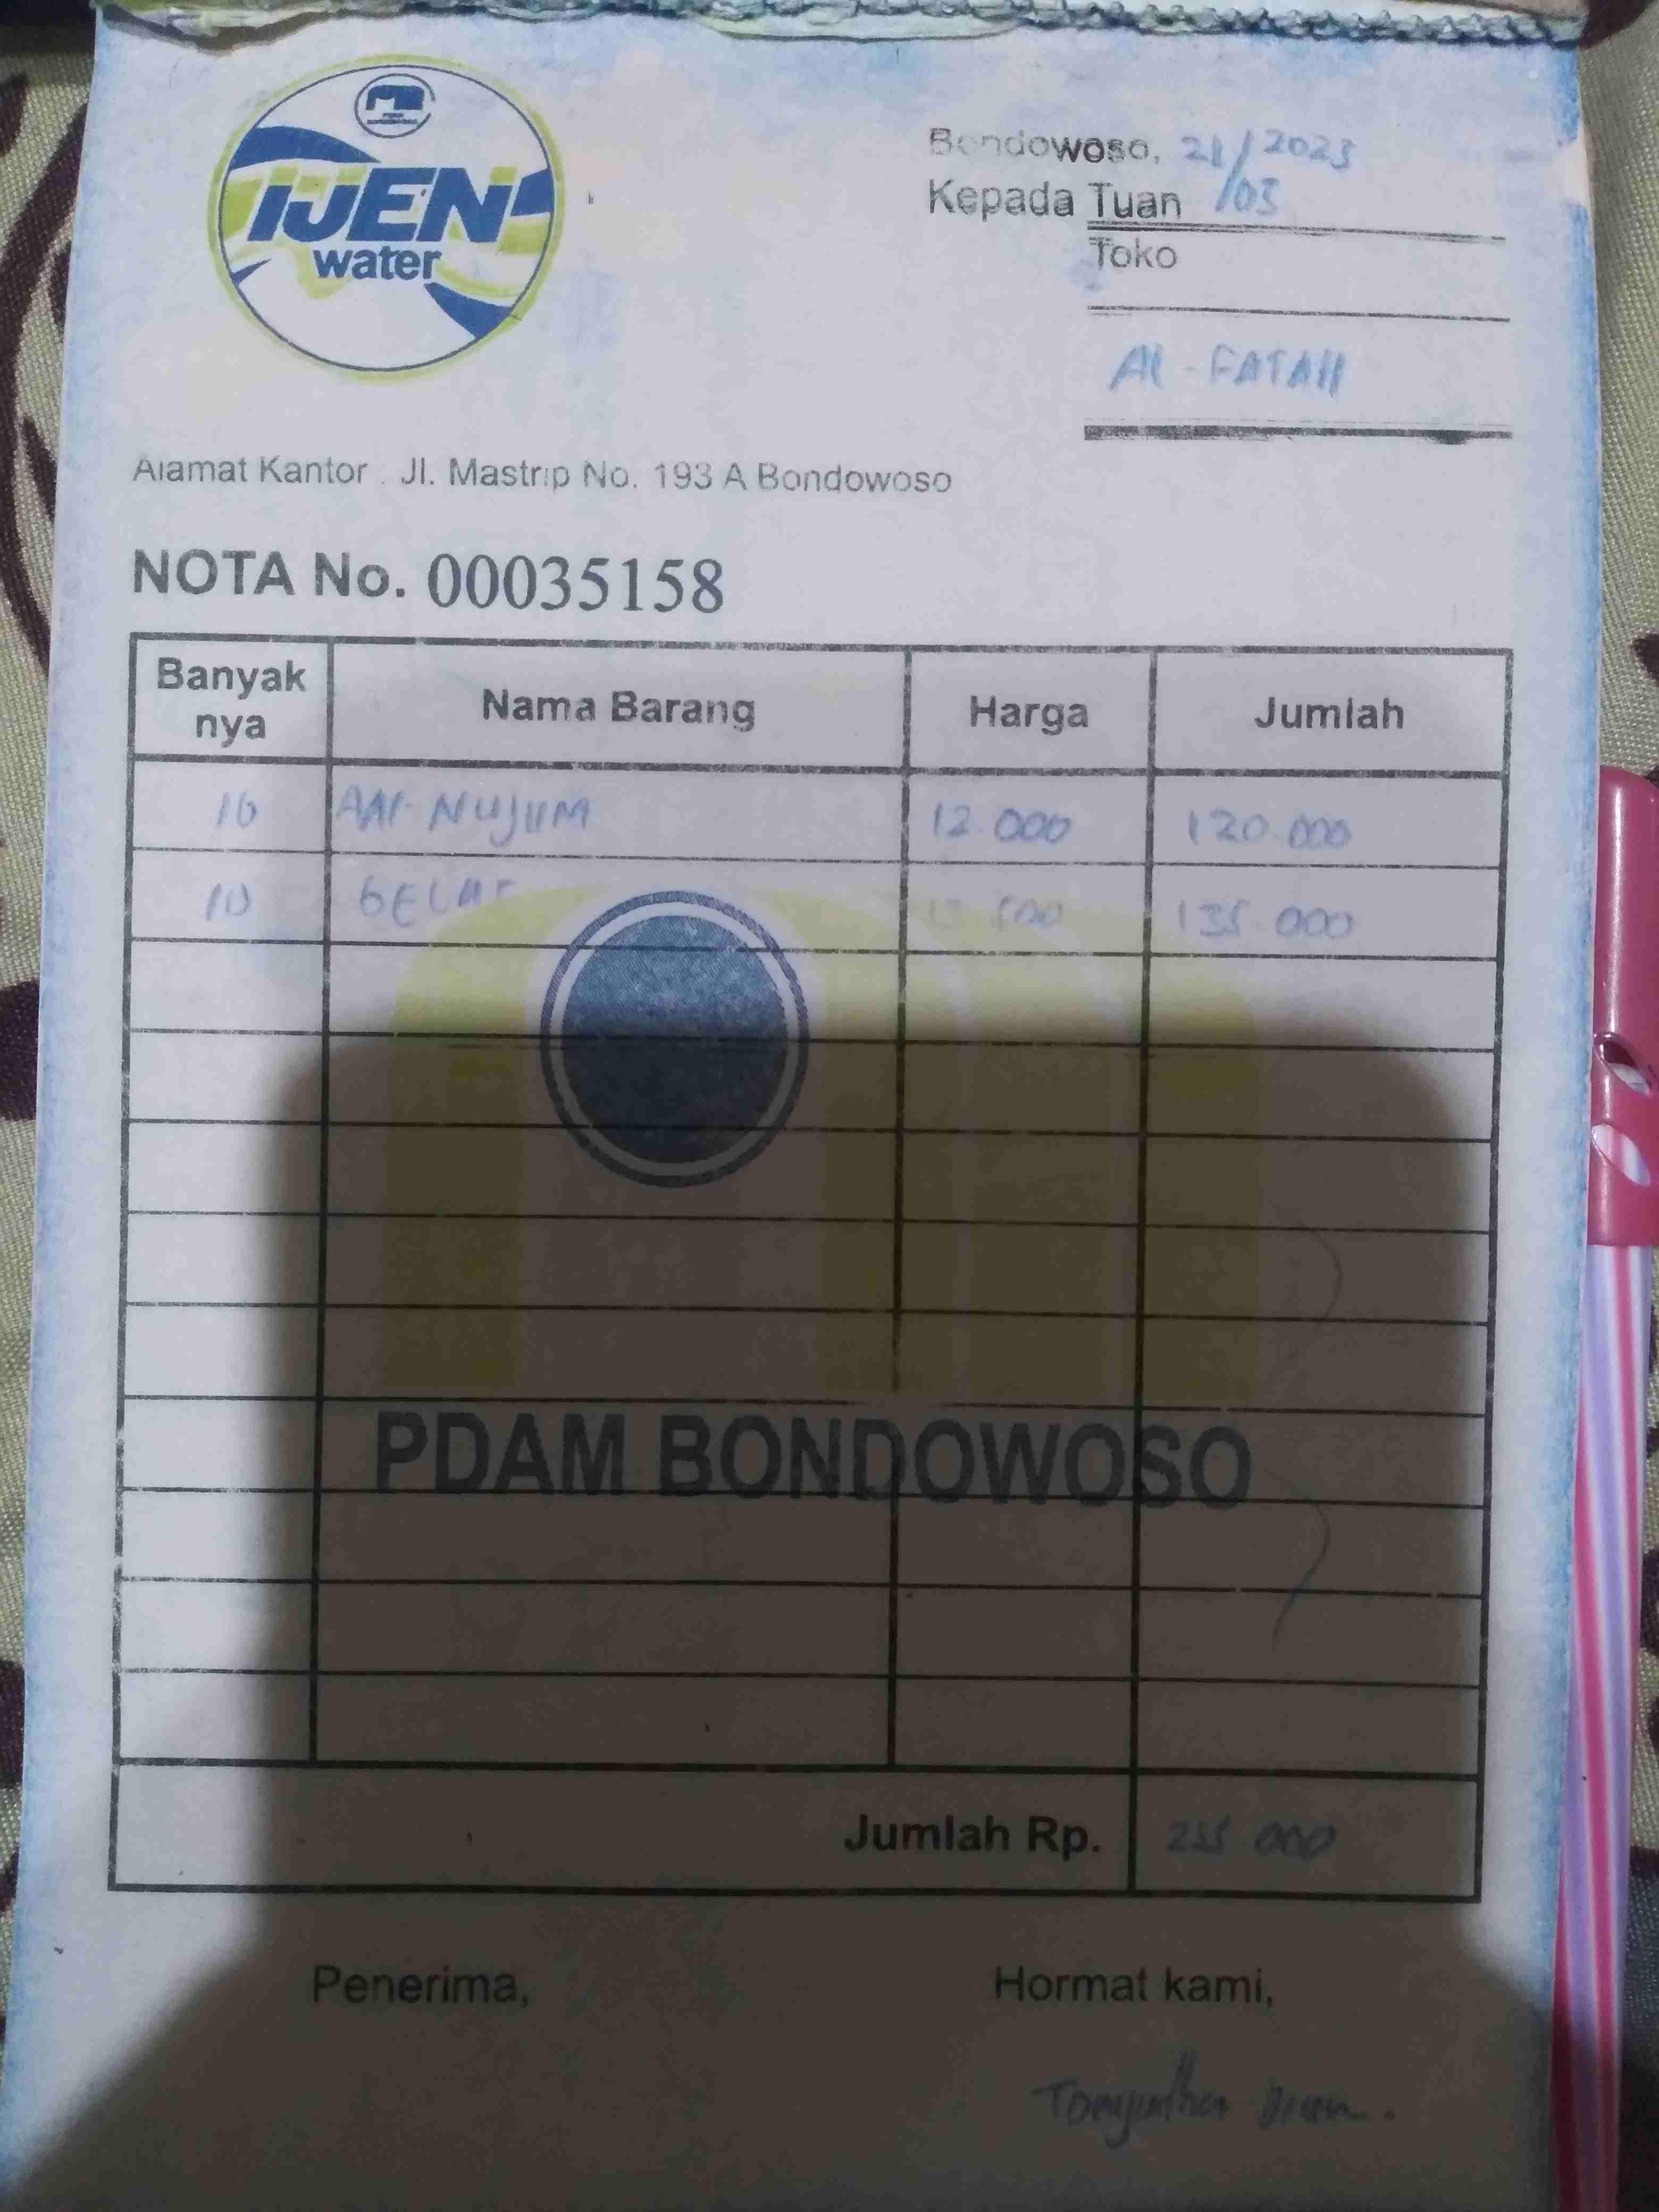 IJEN
water
Bondowoso, 21/03/2023
Kepada Tuan
Toko
Al-FATAH
Alamat Kantor : Jl. Mastrip No. 193 A Bondowoso
NOTA No. 00035158
Banyak nya Nama Barang Harga Jumlah
10 AN-NUJUM 12.000 120.000
10 GELAS 13.500 135.000
PDAM BONDOWOSO
Jumlah Rp. 255.000
Penerima, Hormat kami,